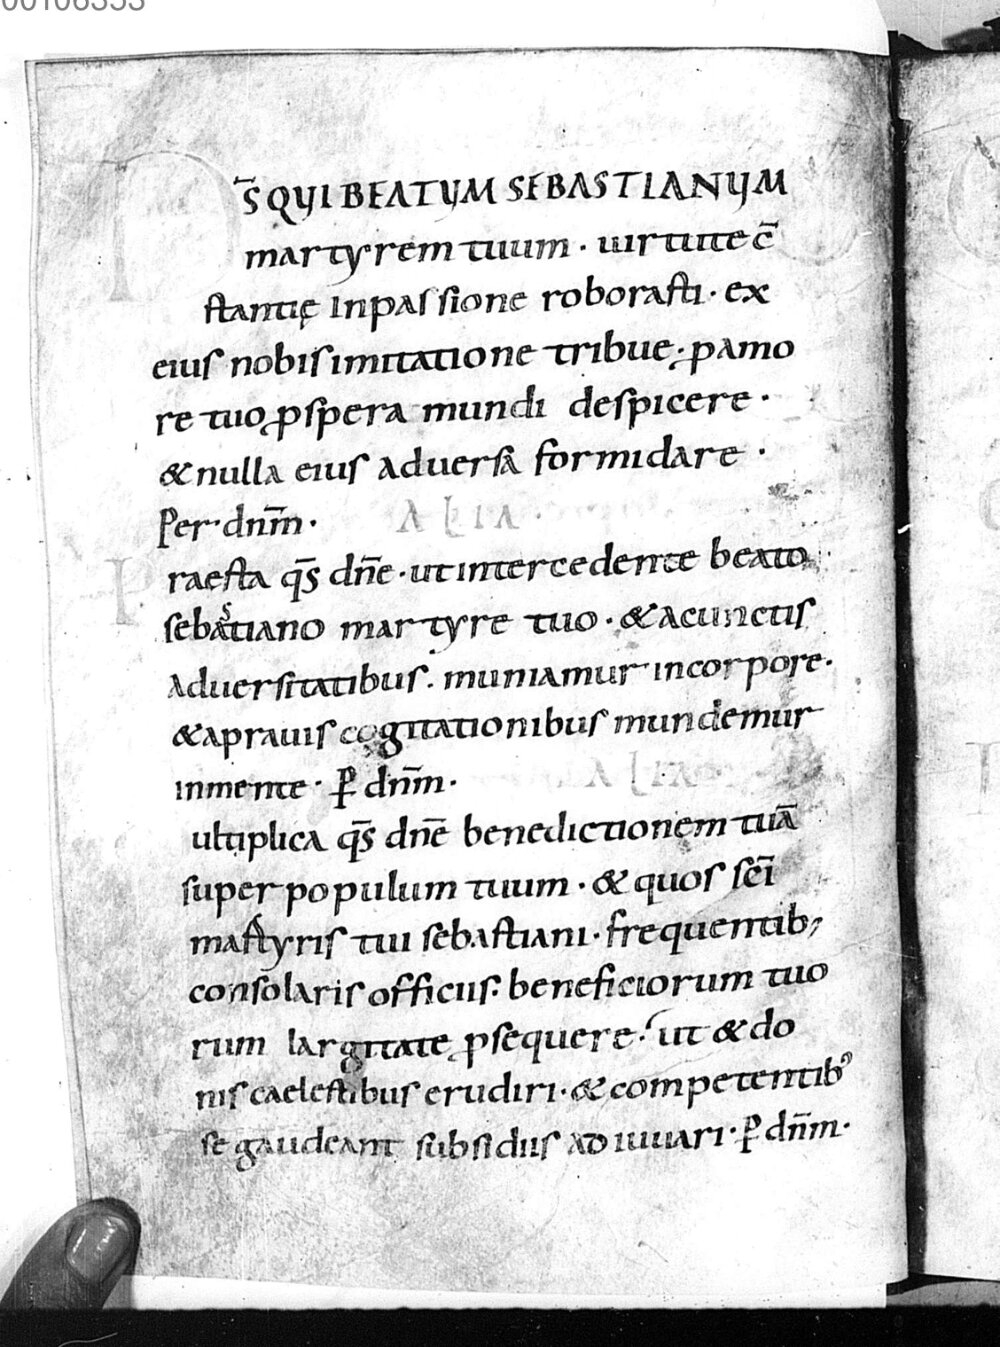 00106353
D̅S̅ QUI BEATUM SEBASTIANUM
martyrem tuum · uirtute c̅
stantię inpassione roborasti · ex
eius nobis imitatione tribue · ꝓ amo
re tuo ꝓspera mundi despicere ·
& nulla eius aduersa formidare ·
Per · dn̅m ·
ALIA ·
Praesta qs̅ dn̅e · ut intercedente beato
sebastiano martyre tuo · & acunctis
aduersitatibus · muniamur incorpore ·
& aprauis cogitationibus mundemur
inmente · ꝑ dn̅m ·
ALIA
ultiplica qs̅ dn̅e benedictionem tuā
super populum tuum · & quos sc̅i
martyris tui sebastiani · frequentib;
consolaris officiis · beneficiorum tuo
rum largitate ꝓsequere · ut & do
nis caelestibus erudiri · & competentib;
se gaudeant subsidiis adiuuari · ꝑ dn̅m ·